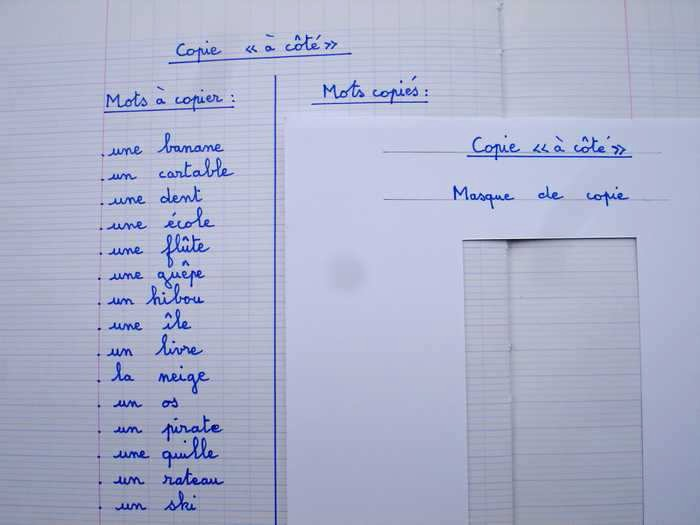 Copie « à côté »
Mots à copier :
. une banane
. un cartable
. une dent
. une école
. une flûte
. une guêpe
. un hibou
. une île
. un livre
. la neige
. un os
. un pirate
. une quille
. un rateau
. un ski
Mots copiés :
Copie « à côté »
Masque de copie